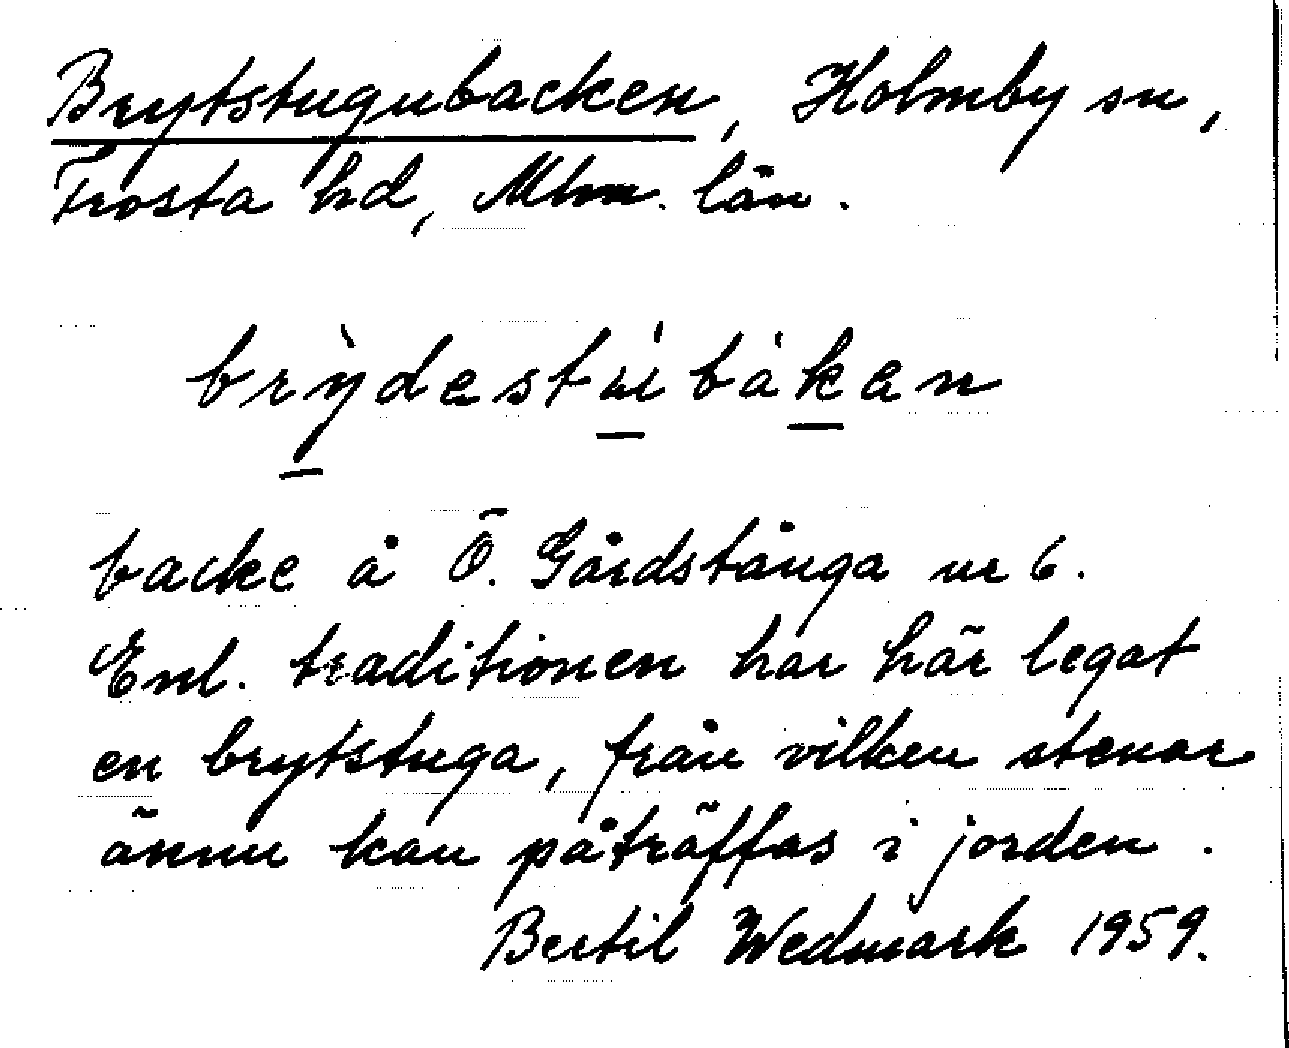 Brytstugubacken, Holmby sn,
Frosta hd, Mlm. län.
brỳdestúi bákan
backe å Ö. Gårdstånga nr 6.
Enl. traditionen har här legat
en brytstuga, från vilken stenar
ännu kan påträffas i jorden.
Bertil Wedmark 1959.